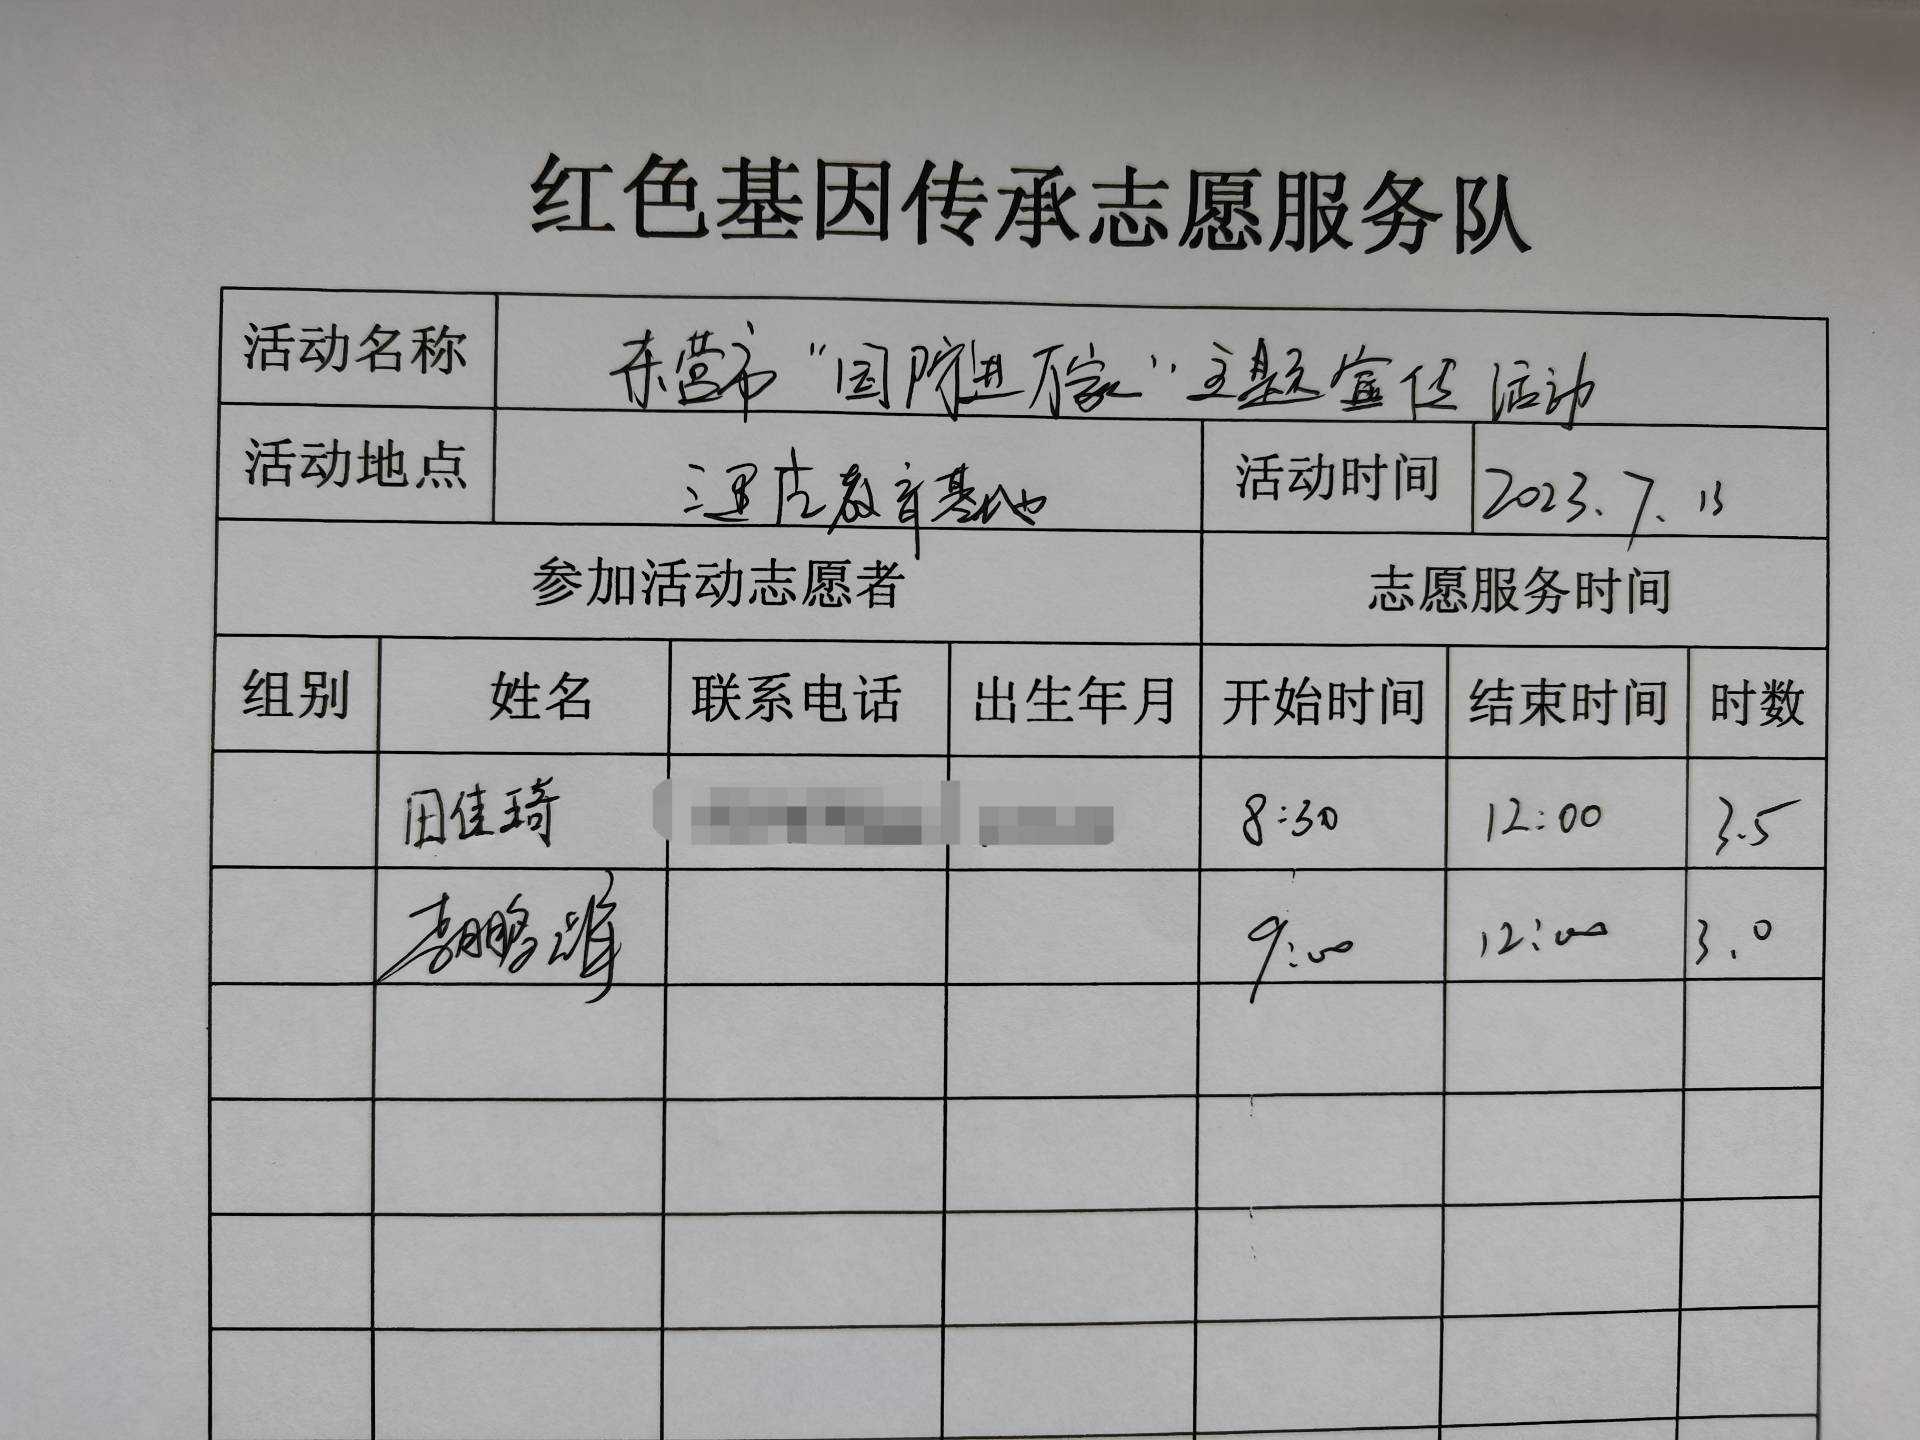 红色基因传承志愿服务队
活动名称 东营市“国防进万家”主题宣传活动
活动地点 教育基地 活动时间 2023.7.13
参加活动志愿者 志愿服务时间
组别 姓名 联系电话 出生年月 开始时间 结束时间 时数
田佳琦 8:30 12:00 3.5
李鹏 9:00 12:00 3.0